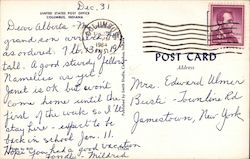 Dec. 31
UNITED STATES POST OFFICE
COLUMBUS, INDIANA
Dear Alberta - My
grandson arrived
as ordered. 7 lb. 13
A good sturdy fellow
Nameless as yet.
Janet is ok but won't
come home until the
first of the week so I'll
stay here - expect to be
back in school Jan. 11.
Hope you had a good vacation
Fondly, Mildred
1964
POST CARD
Address
Mrs. Edward Ulmer
Bush - Townline Rd
Jamestown, New York